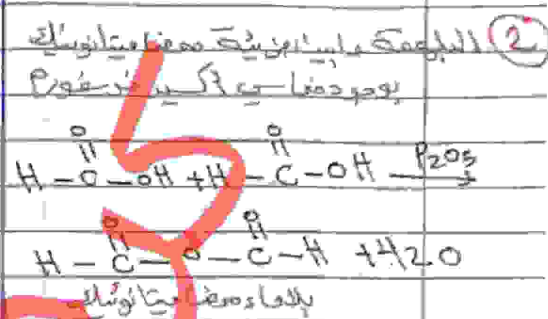 2 البلمهة مابين جزيئية لحمض ميتانوئيك
بوجود خماسي أكسيد الفوسفور
O O
H - C - OH + H - C - OH P2O5 →
O O
H - C - O - C - H + H2O
بلا ماء حمض الميتانوئيك